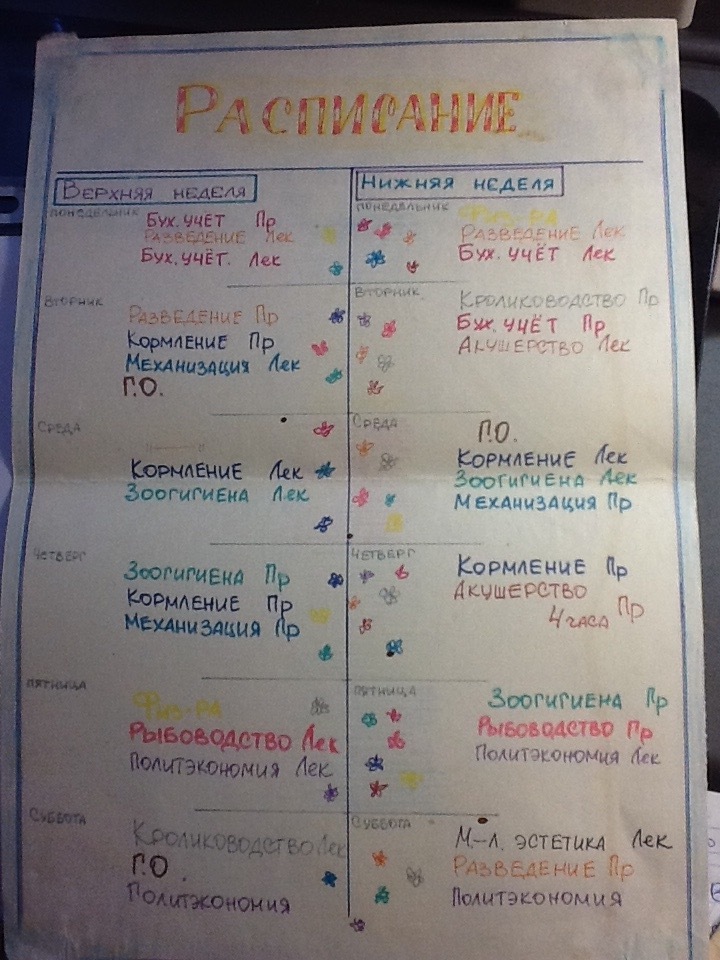 РАСПИСАНИЕ
ВЕРХНЯЯ НЕДЕЛЯ
ПОНЕДЕЛЬНИК
БУХ. УЧЁТ Пр
РАЗВЕДЕНИЕ Лек
БУХ. УЧЁТ. Лек
ВТОРНИК
РАЗВЕДЕНИЕ Пр
КОРМЛЕНИЕ Пр
МЕХАНИЗАЦИЯ Лек
Г.О.
СРЕДА
КОРМЛЕНИЕ Лек
ЗООГИГИЕНА Лек
ЧЕТВЕРГ
ЗООГИГИЕНА Пр
КОРМЛЕНИЕ Пр
МЕХАНИЗАЦИЯ Пр
ПЯТНИЦА
ФИЗ-РА
РЫБОВОДСТВО Лек
ПОЛИТЭКОНОМИЯ Лек
СУББОТА
КРОЛИКОВОДСТВО Лек
Г.О.
ПОЛИТЭКОНОМИЯ
НИЖНЯЯ НЕДЕЛЯ
ПОНЕДЕЛЬНИК
ФИЗ-РА
РАЗВЕДЕНИЕ Лек
БУХ. УЧЁТ Лек
ВТОРНИК
КРОЛИКОВОДСТВО Пр
БУХ. УЧЁТ Пр
АКУШЕРСТВО Лек
СРЕДА
Г.О.
КОРМЛЕНИЕ Лек
ЗООГИГИЕНА Лек
МЕХАНИЗАЦИЯ Пр
ЧЕТВЕРГ
КОРМЛЕНИЕ Пр
АКУШЕРСТВО
4 ЧАСА Пр
ПЯТНИЦА
ЗООГИГИЕНА Пр
РЫБОВОДСТВО Пр
ПОЛИТЭКОНОМИЯ Лек
СУББОТА
М-Л. ЭСТЕТИКА Лек
РАЗВЕДЕНИЕ Пр
ПОЛИТЭКОНОМИЯ